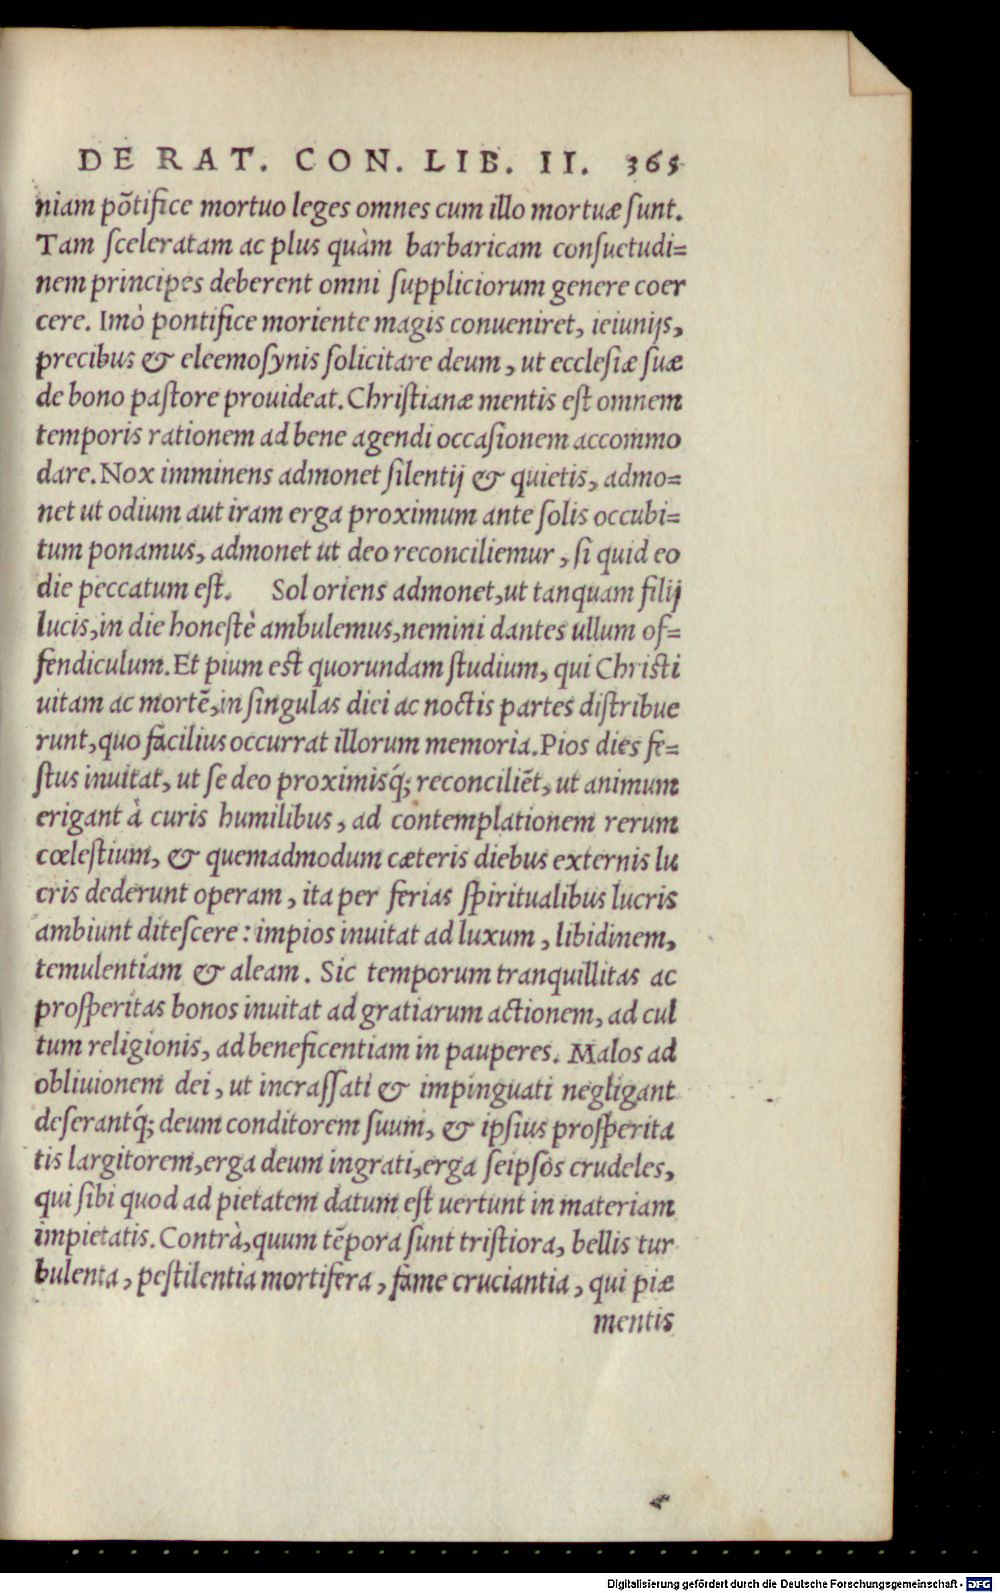 DE RAT. CON. LIB. II. 365
niam põtifice mortuo leges omnes cum illo mortuæ ſunt.
Tam ſceleratam ac plus quàm barbaricam conſuetudi=
nem principes deberent omni ſuppliciorum genere coer
cere. Imò pontifice moriente magis conueniret, ieiunijs,
precibus & eleemoſynis ſolicitare deum, ut eccleſiæ ſuæ
de bono paſtore prouideat. Chriſtianæ mentis eſt omnem
temporis rationem ad bene agendi occaſionem accommo
dare. Nox imminens admonet ſilentij & quietis, admo=
net ut odium aut iram erga proximum ante ſolis occubi=
tum ponamus, admonet ut deo reconciliemur, ſi quid eo
die peccatum eſt. Sol oriens admonet, ut tanquam filij
lucis, in die honeſtè ambulemus, nemini dantes ullum of=
fendiculum. Et pium est quorundam ſtudium, qui Christi
uitam ac mortẽ, in ſingulas diei ac noctis partes diſtribue
runt, quo facilius occurrat illorum memoria. Pios dies fe=
ſtus inuitat, ut ſe deo proximisq́; reconciliẽt, ut animum
erigant à curis humilibus, ad contemplationem rerum
cœleſtium, & quemadmodum cæteris diebus externis lu
cris dederunt operam, ita per ferias ſpiritualibus lucris
ambiunt diteſcere: impios inuitat ad luxum, libidinem,
temulentiam & aleam. Sic temporum tranquillitas ac
proſperitas bonos inuitat ad gratiarum actionem, ad cul
tum religionis, ad beneficentiam in pauperes. Malos ad
obliuionem dei, ut incraſſati & impinguati negligant
deſerantq́; deum conditorem ſuum, & ipſius proſperita
tis largitorem, erga deum ingrati, erga ſeipſos crudeles,
qui ſibi quod ad pietatem datum eſt uertunt in materiam
impietatis. Contrà, quum tẽpora ſunt triſtiora, bellis tur
bulenta, peſtilentia mortifera, fame cruciantia, qui piæ
mentis
Digitalisierung gefördert durch die Deutsche Forschungsgemeinschaft - DFG